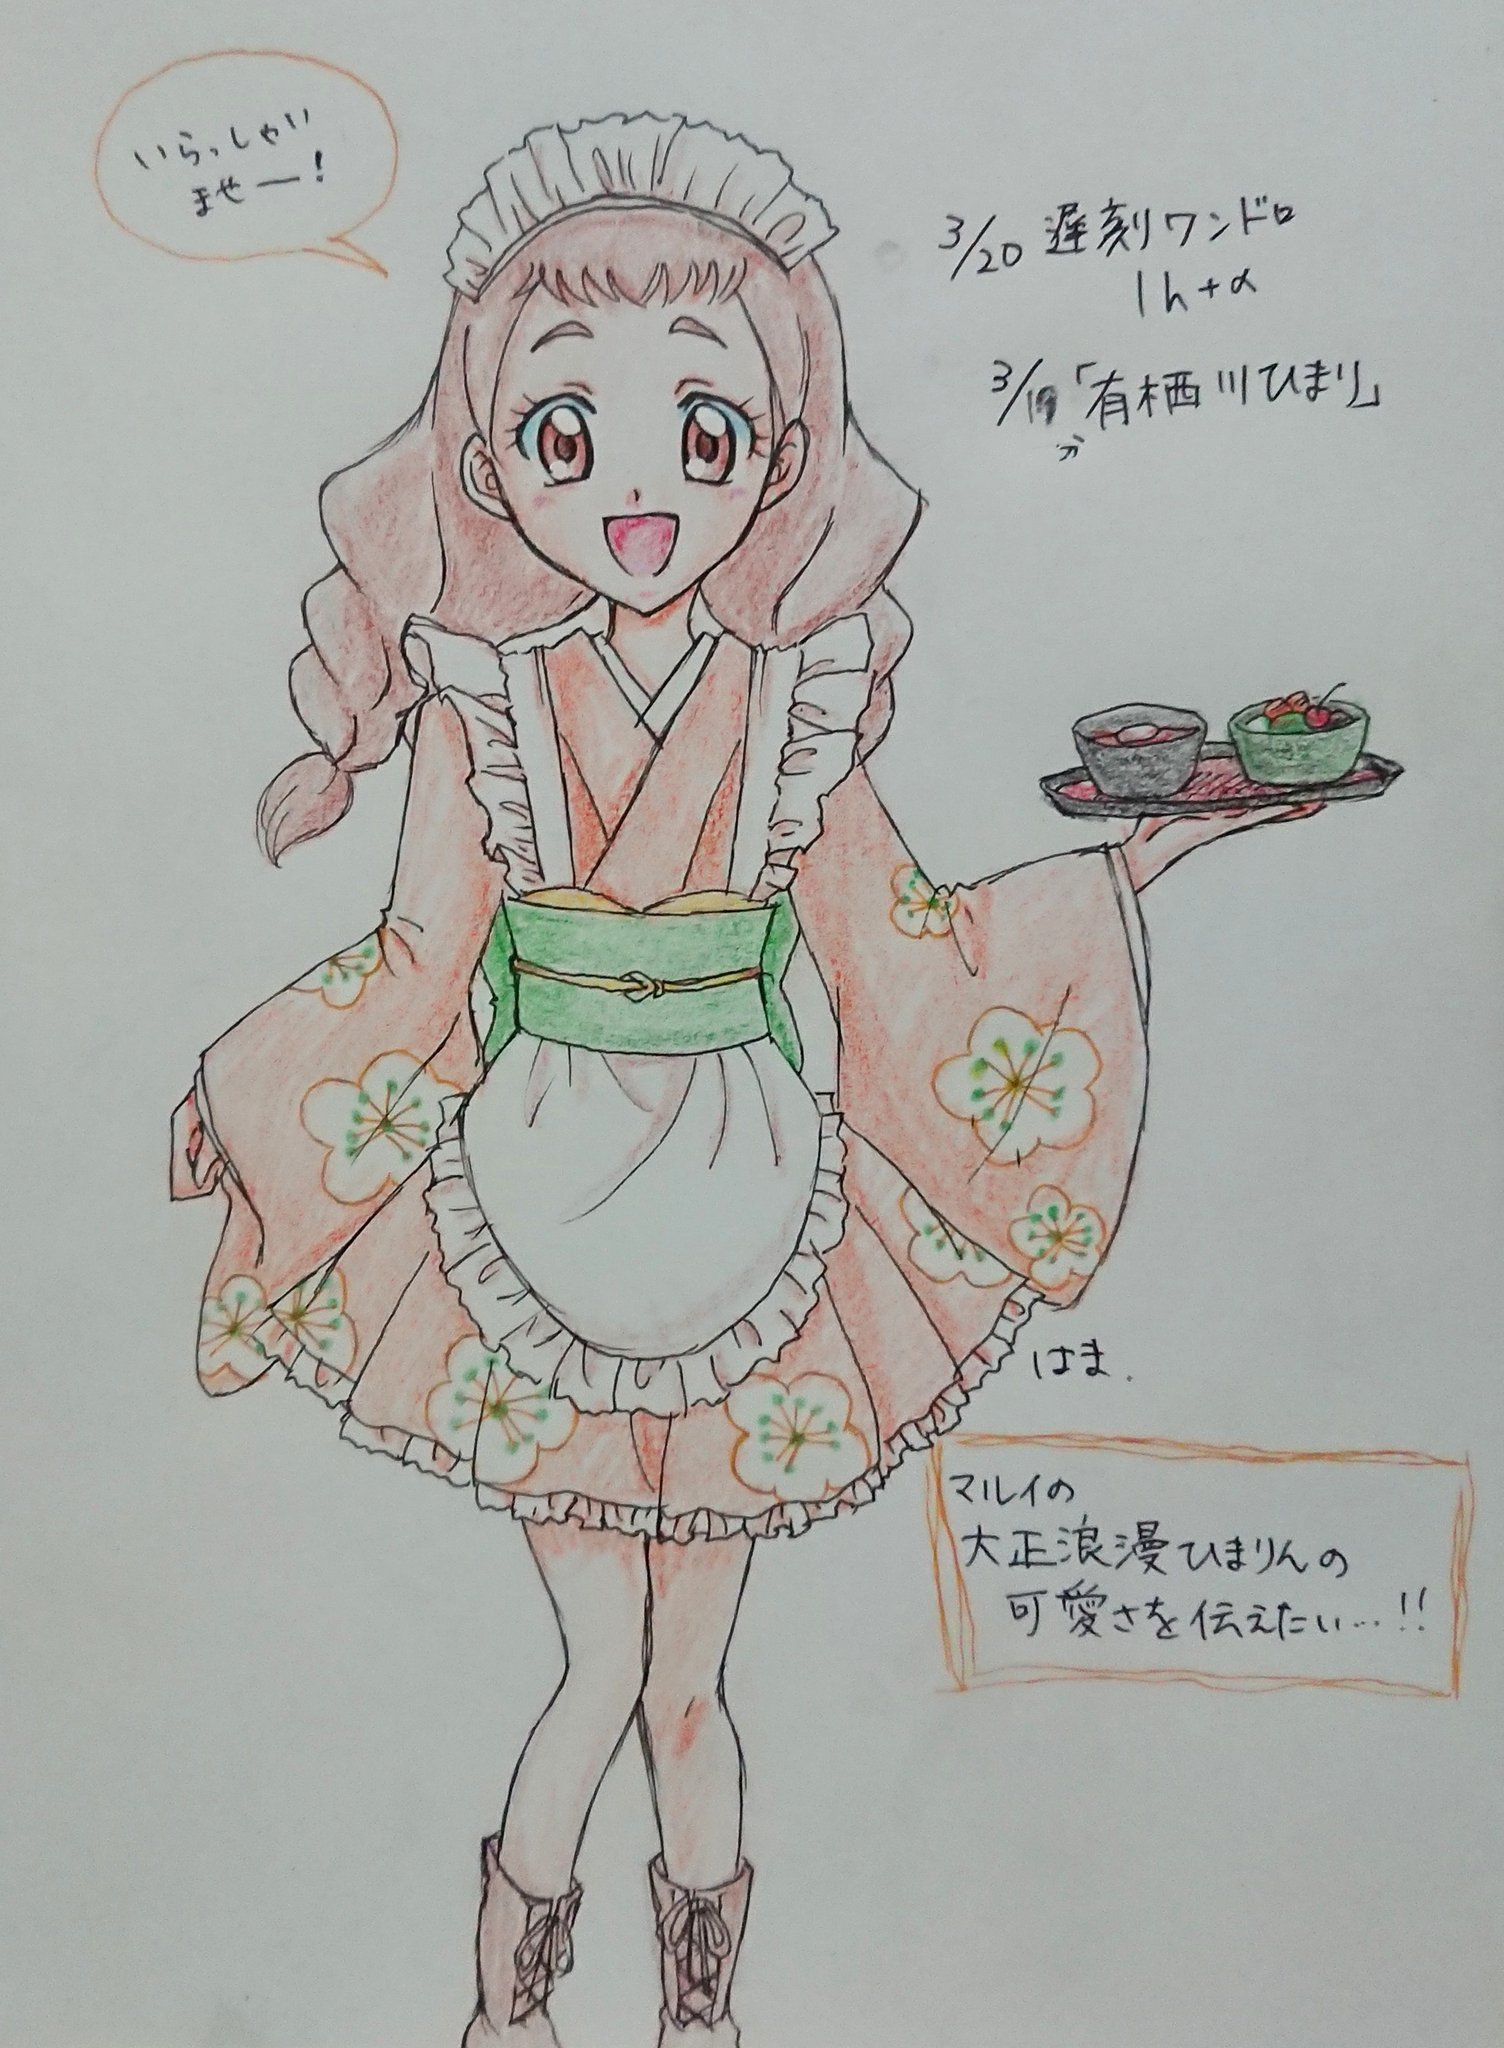 いらっしゃい
ませー!
3/20 遅刻ワンドロ
1h+α
3/19「有栖川ひまり」
分
はま.
マルイの
大正浪漫ひまりんの
可愛さを伝えたい…!!